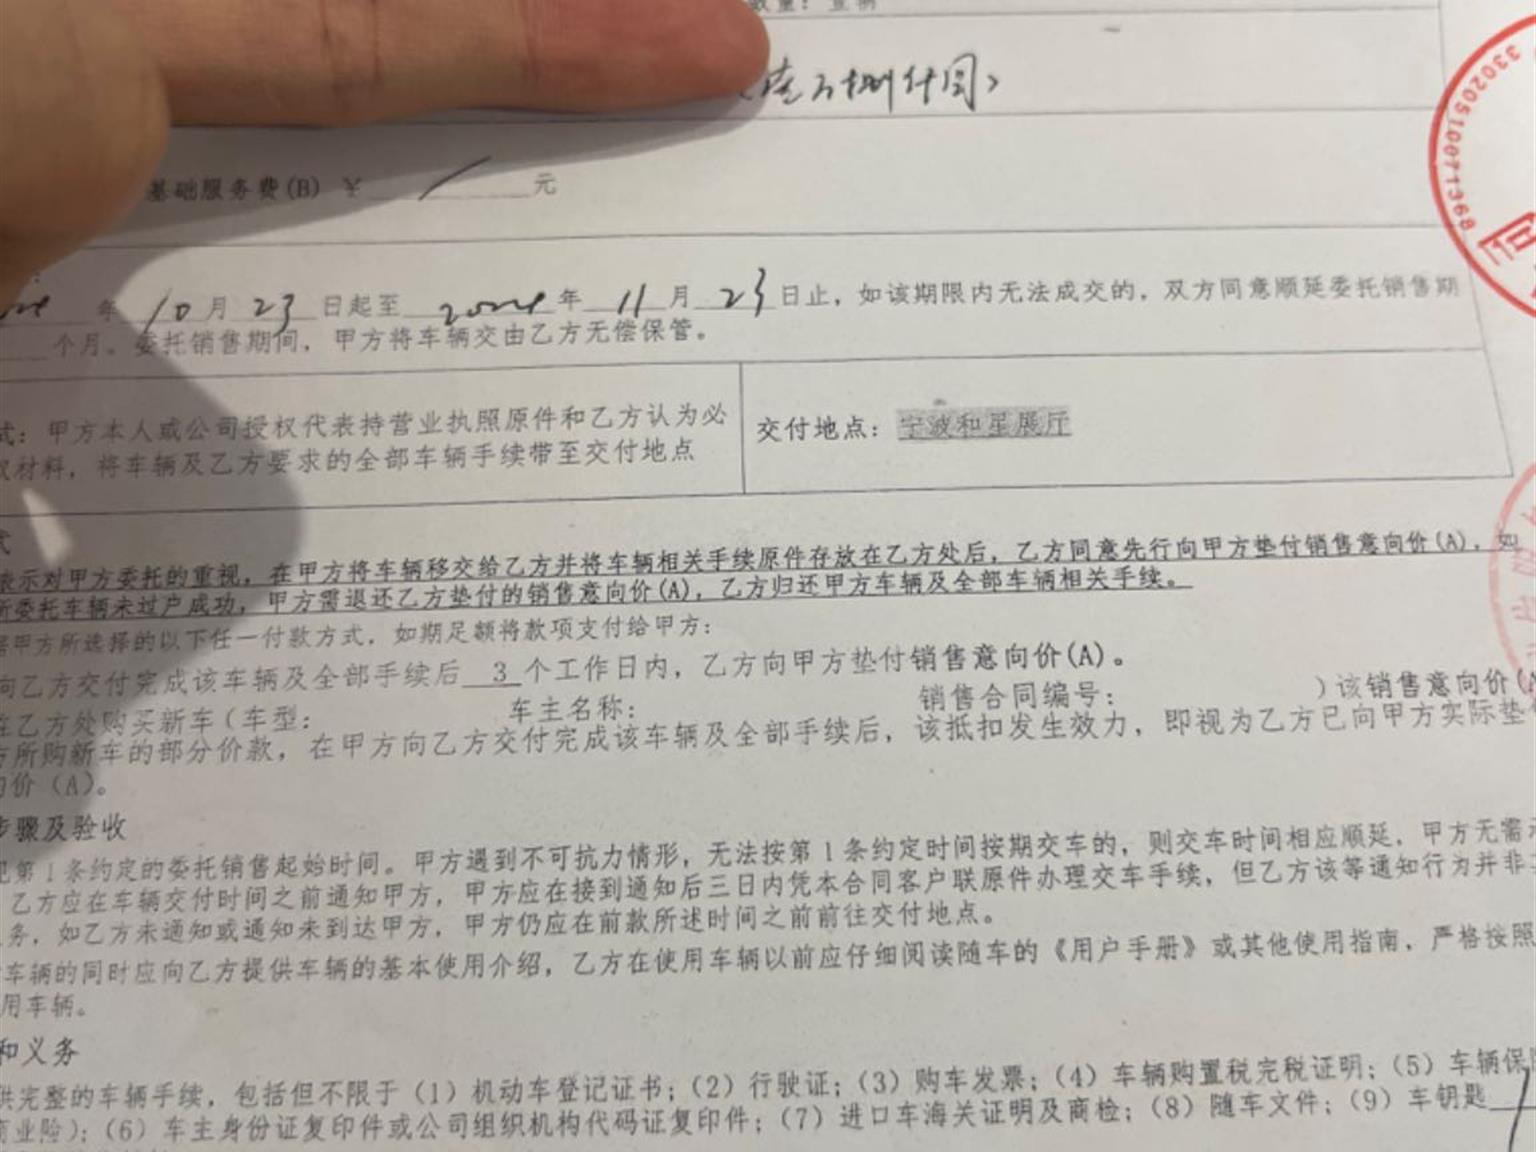 数量：壹辆
壹万捌仟圆）
基础服务费(B) ¥ / 元
年 10 月 23 日起至 2024 年 11 月 23 日止，如该期限内无法成交的，双方同意顺延委托销售期
个月。委托销售期间，甲方将车辆交由乙方无偿保管。
式：甲方本人或公司授权代表持营业执照原件和乙方认为必
材料，将车辆及乙方要求的全部车辆手续带至交付地点
交付地点：宁波和星展厅
式
表示对甲方委托的重视，在甲方将车辆移交给乙方并将车辆相关手续原件存放在乙方处后，乙方同意先行向甲方垫付销售意向价(A)，如
所委托车辆未过户成功，甲方需退还乙方垫付的销售意向价(A)，乙方归还甲方车辆及全部车辆相关手续。
甲方所选择的以下任一付款方式，如期足额将款项支付给甲方：
向乙方交付完成该车辆及全部手续后 3 个工作日内，乙方向甲方垫付销售意向价(A)。
在乙方处购买新车（车型： 车主名称： 销售合同编号： ）该销售意向价(A
方所购新车的部分价款，在甲方向乙方交付完成该车辆及全部手续后，该抵扣发生效力，即视为乙方已向甲方实际垫
价（A）。
步骤及验收
第1条约定的委托销售起始时间。甲方遇到不可抗力情形，无法按第1条约定时间按期交车的，则交车时间相应顺延，甲方无需
乙方应在车辆交付时间之前通知甲方，甲方应在接到通知后三日内凭本合同客户联原件办理交车手续，但乙方该等通知行为并非
务，如乙方未通知或通知未到达甲方，甲方仍应在前款所述时间之前前往交付地点。
车辆的同时应向乙方提供车辆的基本使用介绍，乙方在使用车辆以前应仔细阅读随车的《用户手册》或其他使用指南，严格按照
用车辆。
和义务
供完整的车辆手续，包括但不限于（1）机动车登记证书；（2）行驶证；（3）购车发票；（4）车辆购置税完税证明；（5）车辆保
商业险）；（6）车主身份证复印件或公司组织机构代码证复印件；（7）进口车海关证明及商检；（8）随车文件；（9）车钥匙
33020510071368